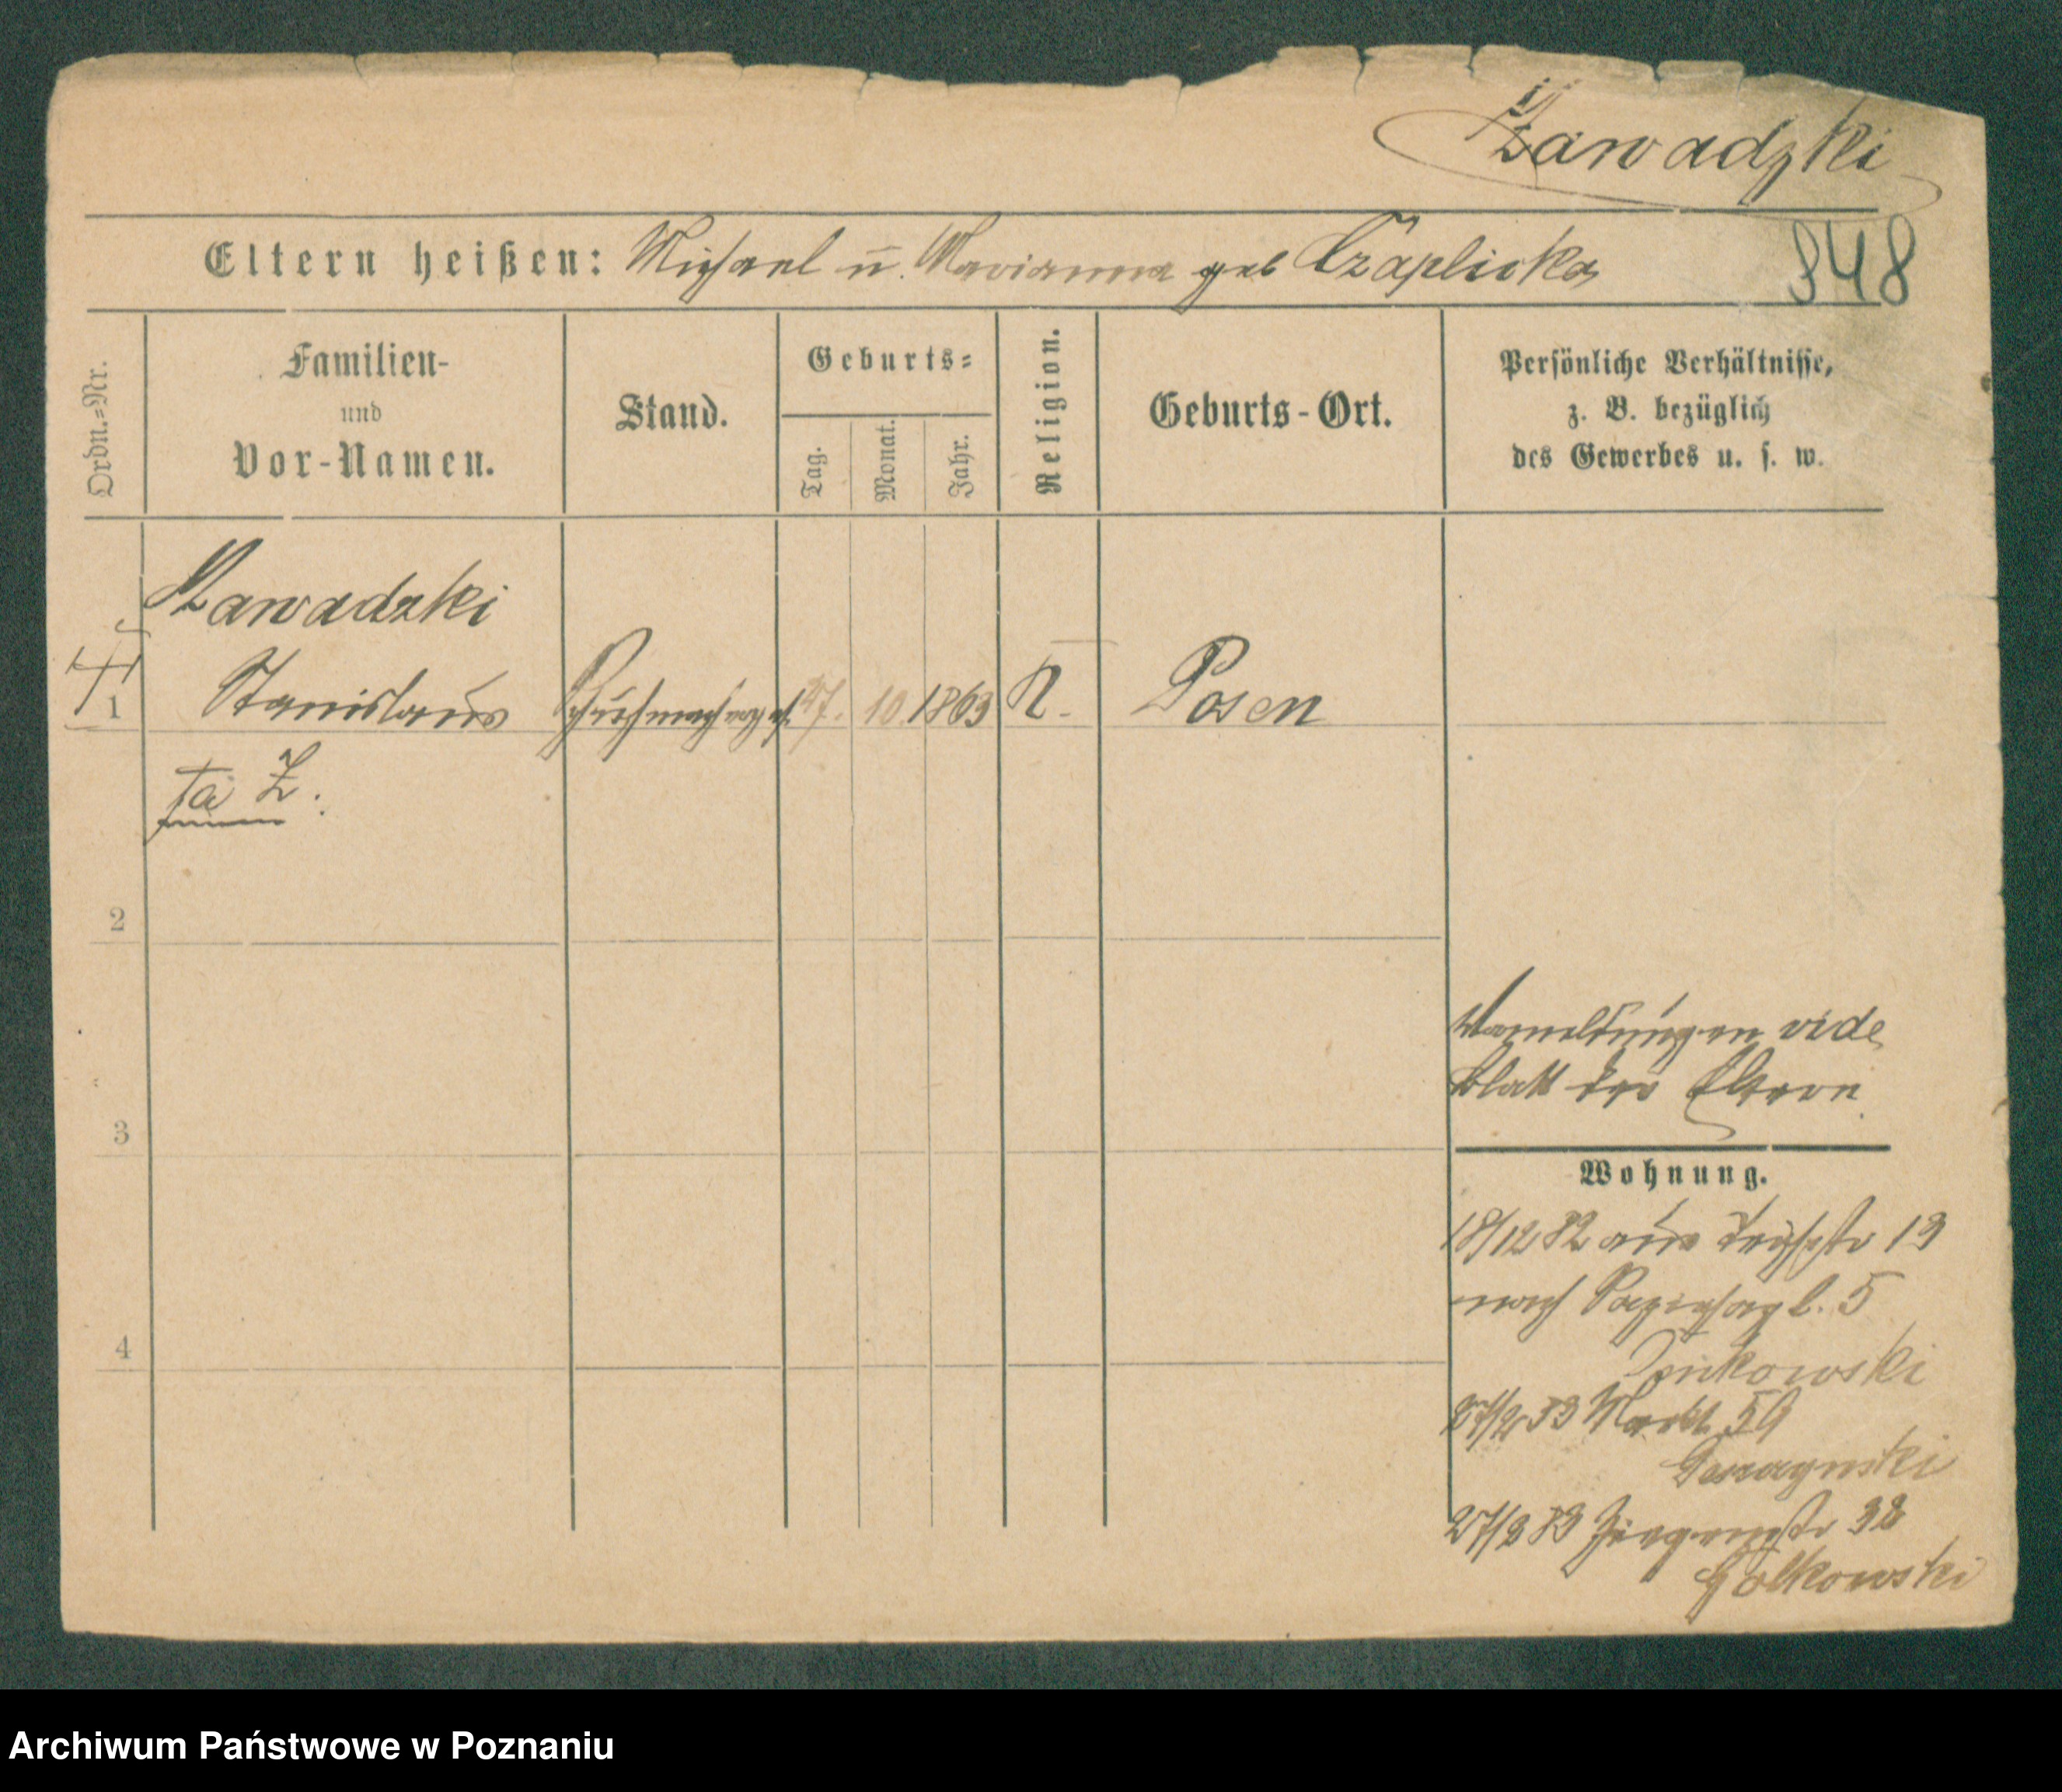 Zawadzki
Eltern heißen: Michael u. Marianna geb Czaplicka
948
Ordn.=Nr.
Familien-
und
Vor-Namen.
Stand.
Geburts=
Tag.
Monat.
Jahr.
Religion.
Geburts-Ort.
Persönliche Verhältnisse,
z. B. bezüglich
des Gewerbes u. s. w.
Zawadzki
1 Stanislaus 10. 1863 K. Posen
Z.
2
Anmeldungen vide
Blatt der Eltern
3
Wohnung.
18/12 82 aus 13
nach 5
4
Markt 59
27/3 83 Ziegenstr 38
Golkowski
Archiwum Państwowe w Poznaniu